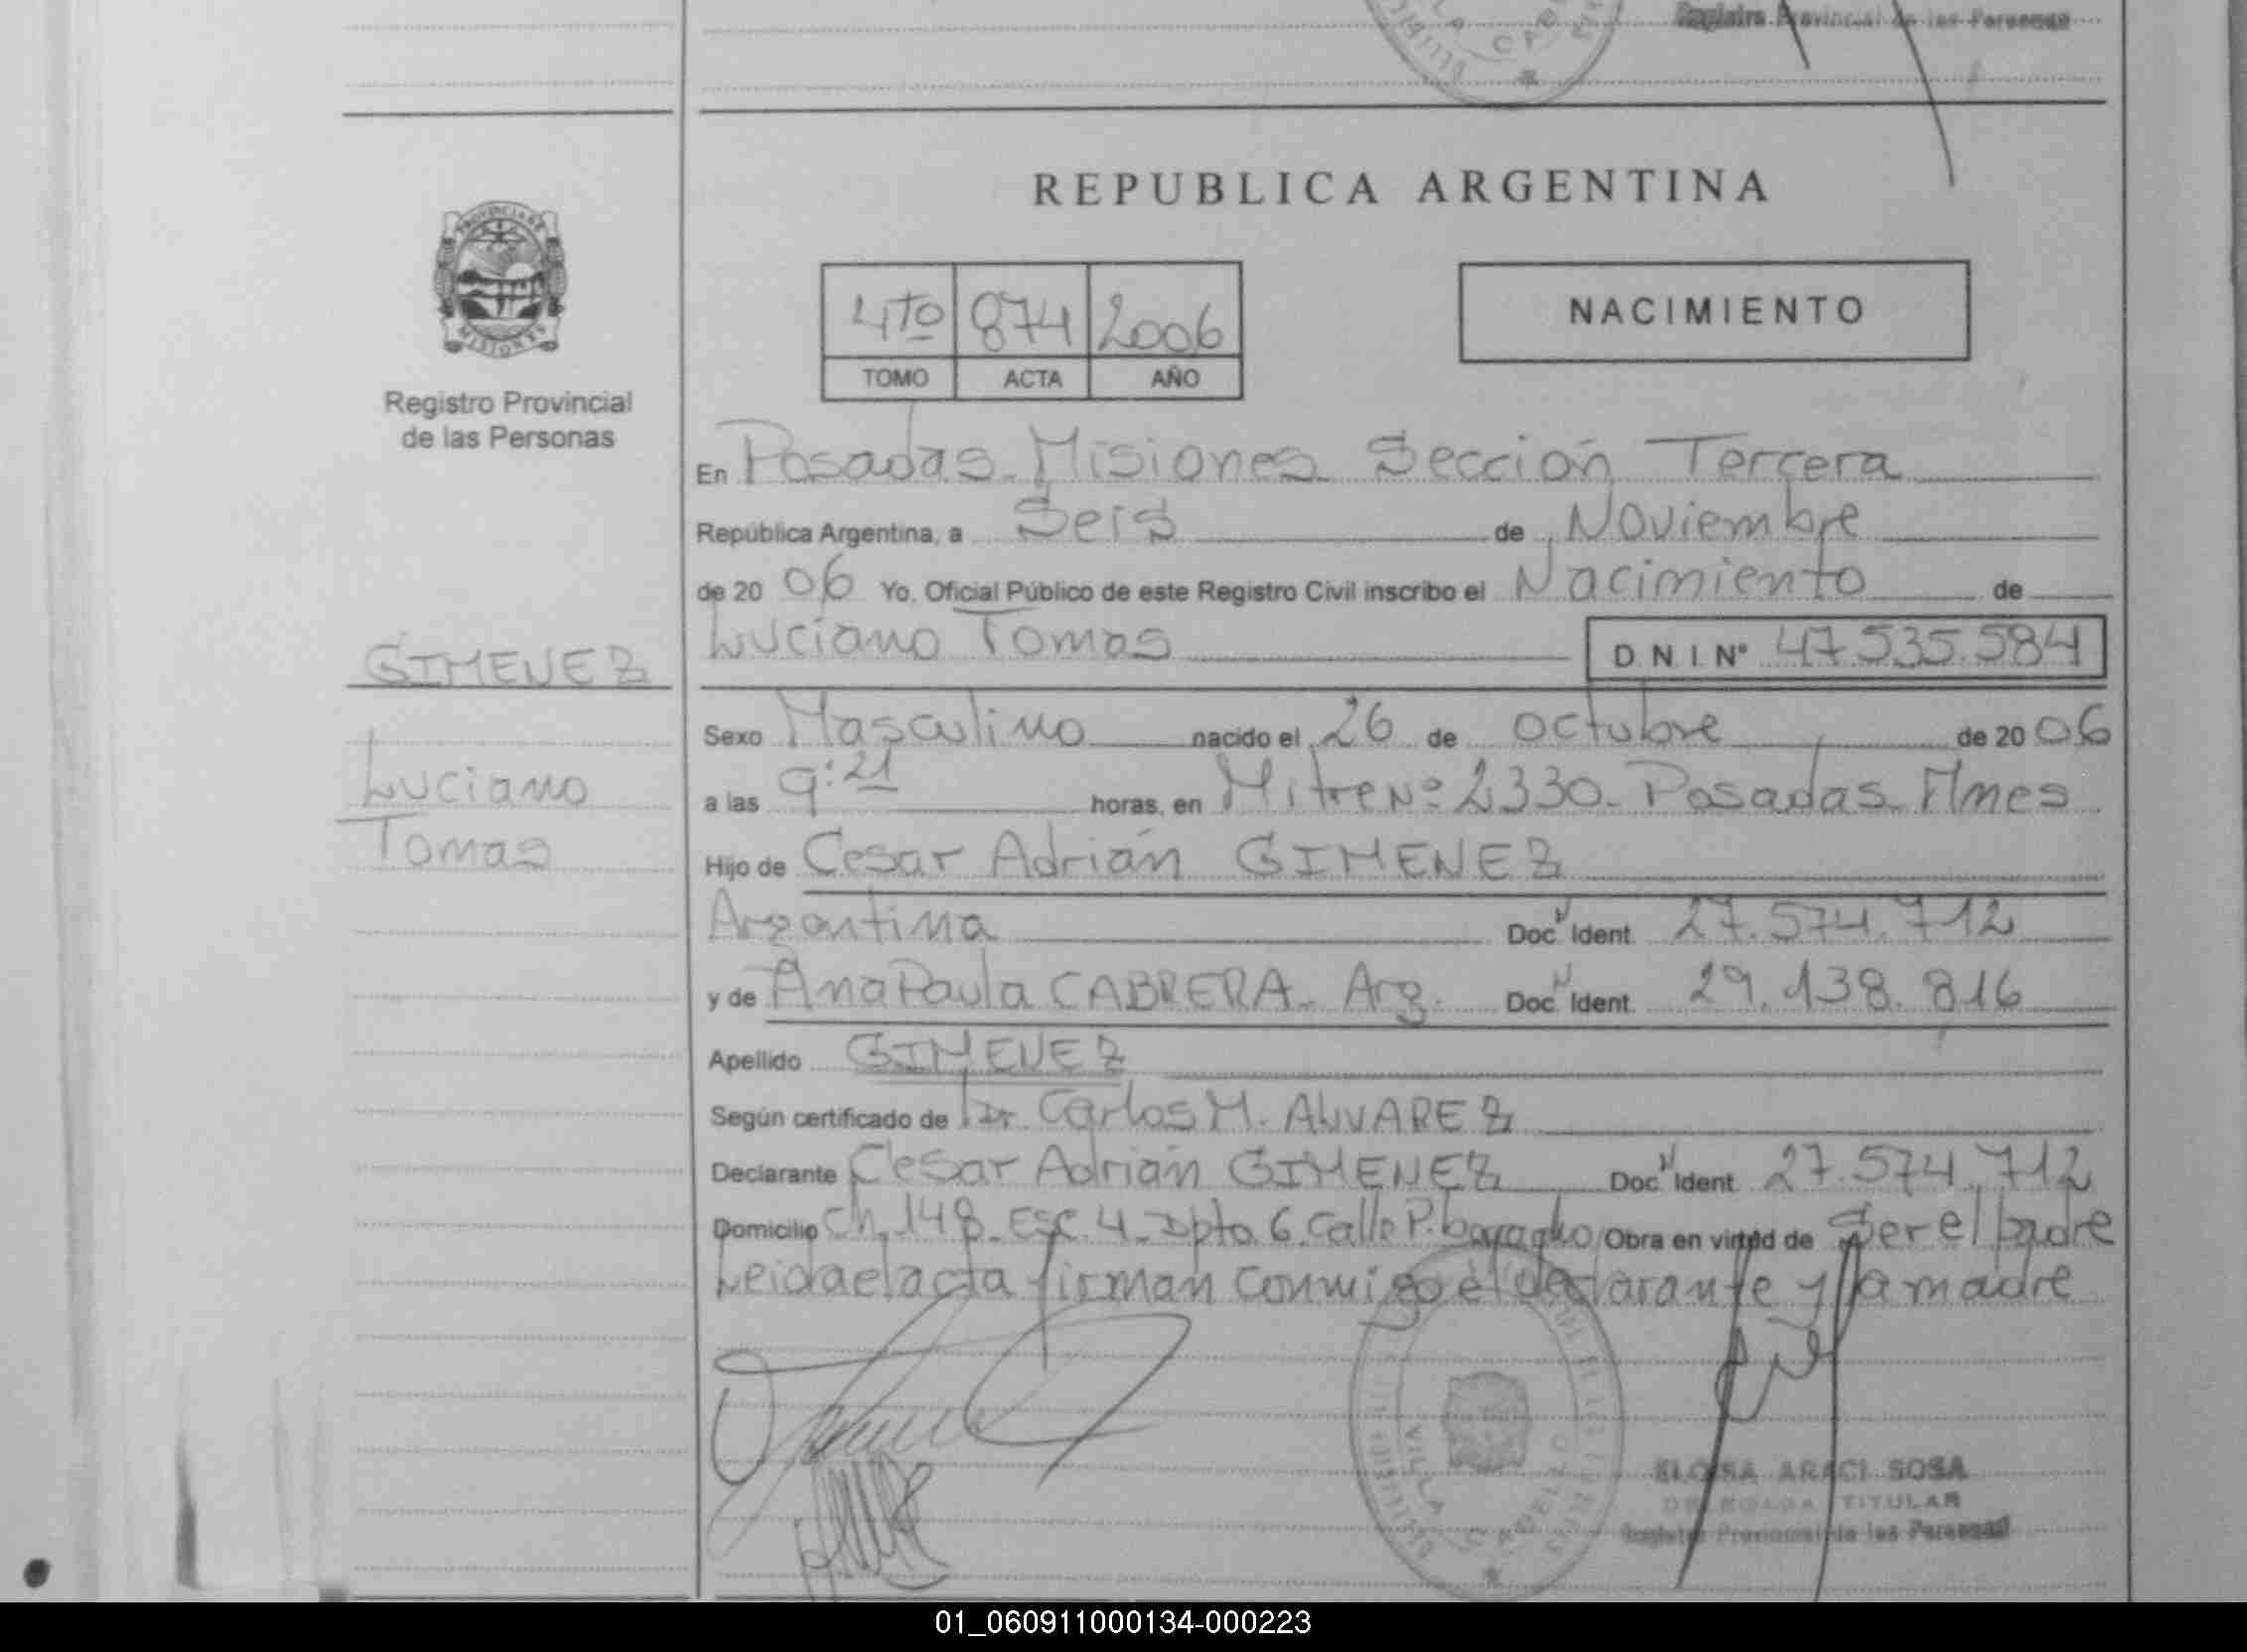 Registro Provincial de las Personas
REPUBLICA ARGENTINA
PROVINCIA DE
MISIONES
Registro Provincial
de las Personas
4to 874 2006
TOMO ACTA AÑO
NACIMIENTO
En Posadas - Misiones Sección Tercera
República Argentina, a Seis de Noviembre
de 20 06 Yo, Oficial Público de este Registro Civil inscribo el Nacimiento de
GIMENEZ
Luciano Tomas
D N I Nº 47.535.584
Luciano
Tomas
Sexo Masculino nacido el 26 de octubre de 20 06
a las 9:21 horas, en Mitre Nº 2330 - Posadas Mnes
Hijo de Cesar Adrián GIMENEZ
Argentina Doc N Ident 27.574.712
y de Ana Paula CABRERA - Arg. Doc N Ident 29.138.816
Apellido GIMENEZ
Según certificado de Dr. Carlos M. ALVAREZ
Declarante Cesar Adrián GIMENEZ Doc N Ident 27.574.712
Domicilio Ch. 148 - Esc. 4 - Dpto. 6. Calle P. Obra en virtud de Ser el padre
Leida el acta firman conmigo el declarante y la madre
VILLA CABELLO
ELOISA ARACI SOSA
DELEGADA TITULAR
Registro Provincial de las Personas
01_060911000134-000223